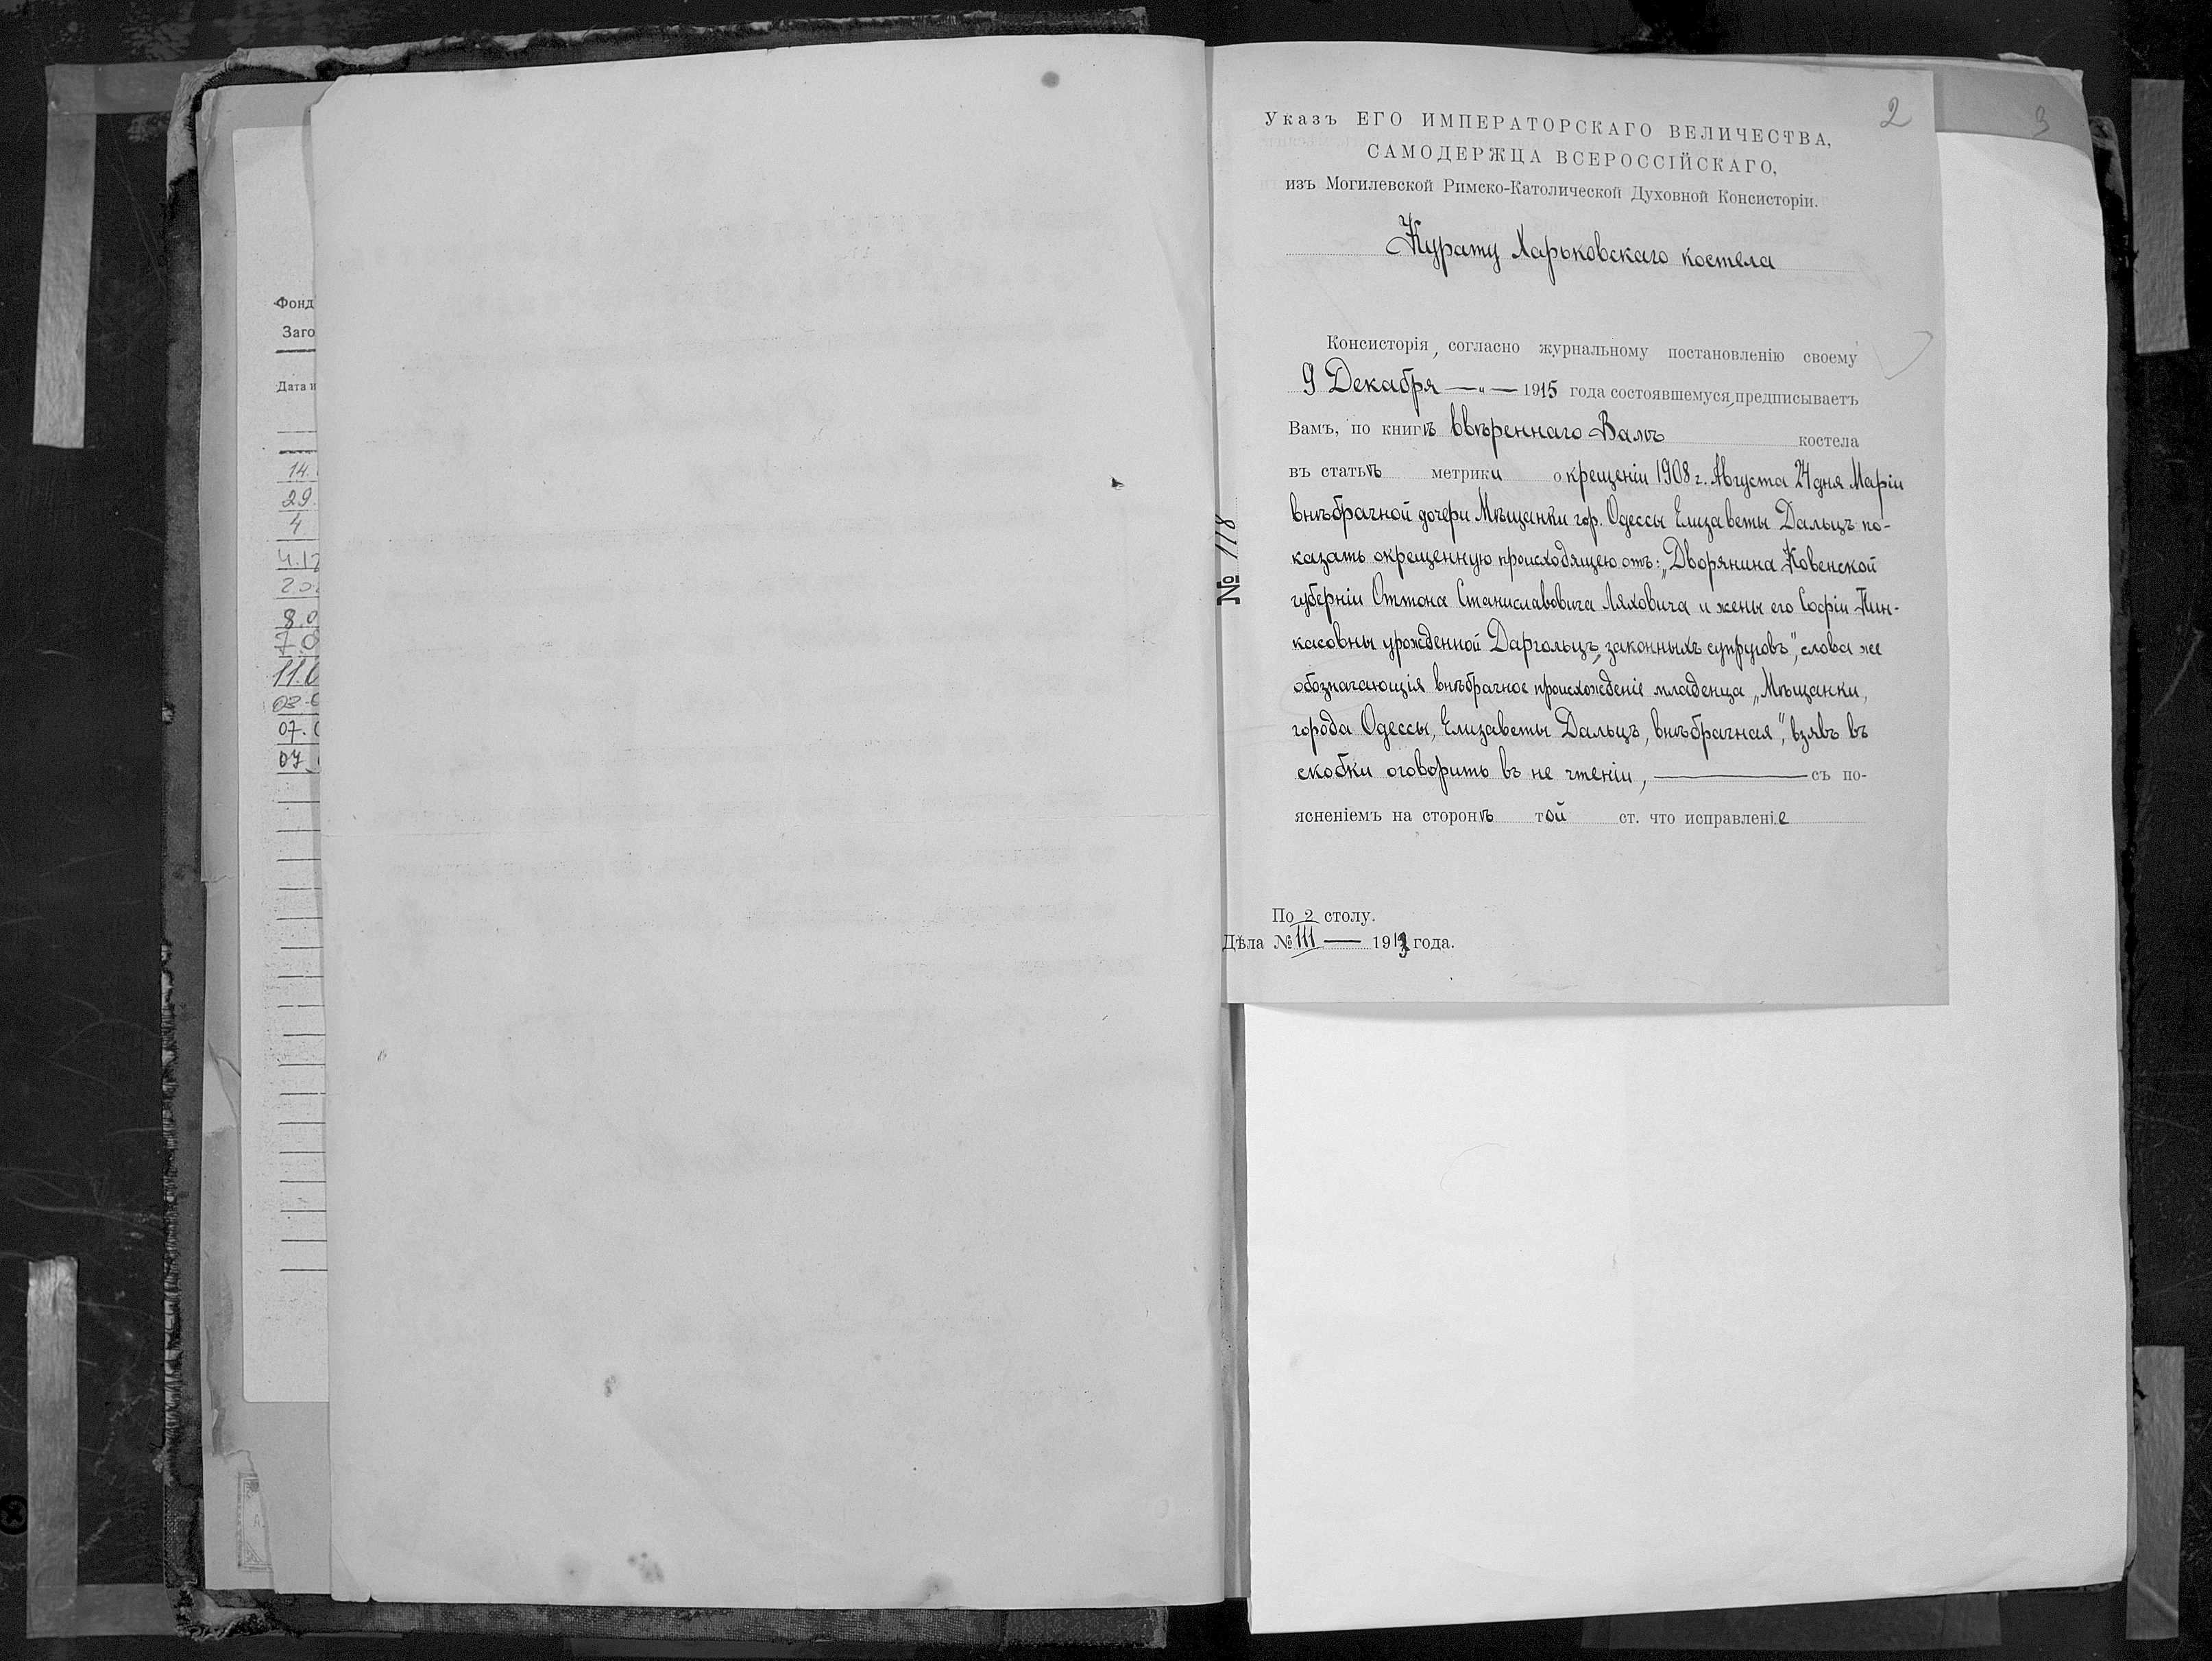 Фонд
Заго
Дата и
14.
29.
4
4.12
20.
8.0
7.0
11.0
03.0
07.0
07
2
3
Указъ ЕГО ИМПЕРАТОРСКАГО ВЕЛИЧЕСТВА,
САМОДЕРЖЦА ВСЕРОССІЙСКАГО,
изъ Могилевской Римско-Католической Духовной Консисторіи.
Курату Харьковскаго костела
Консисторія, согласно журнальному постановленію своему
9 Декабря —„— 1915 года состоявшемуся, предписываетъ
Вамъ, по книгѣ ввѣреннаго Вамъ костела
въ статьѣ метрики о крещеніи 1908 г. Августа 24 дня Маріи
внѣбрачной дочери Мѣщанки гор. Одессы Елизаветы Дальцъ по-
казать окрещенную происходящею отъ: „Дворянина Ковенской
губерніи Оттона Станиславовича Ляховича и жены его Софіи Пин-
касовны урожденной Даргольцъ, законныхъ супруговъ", слова же
обозначающія внѣбрачное происхожденіе младенца „Мѣщанки,
города Одессы, Елизаветы Дальцъ, внѣбрачная", взявъ въ
скобки оговорить въ не чтеніи, ——— съ по-
ясненіемъ на сторонѣ той ст. что исправленіе
№ 118
По 2 столу.
Дѣла № 111 — 1913 года.